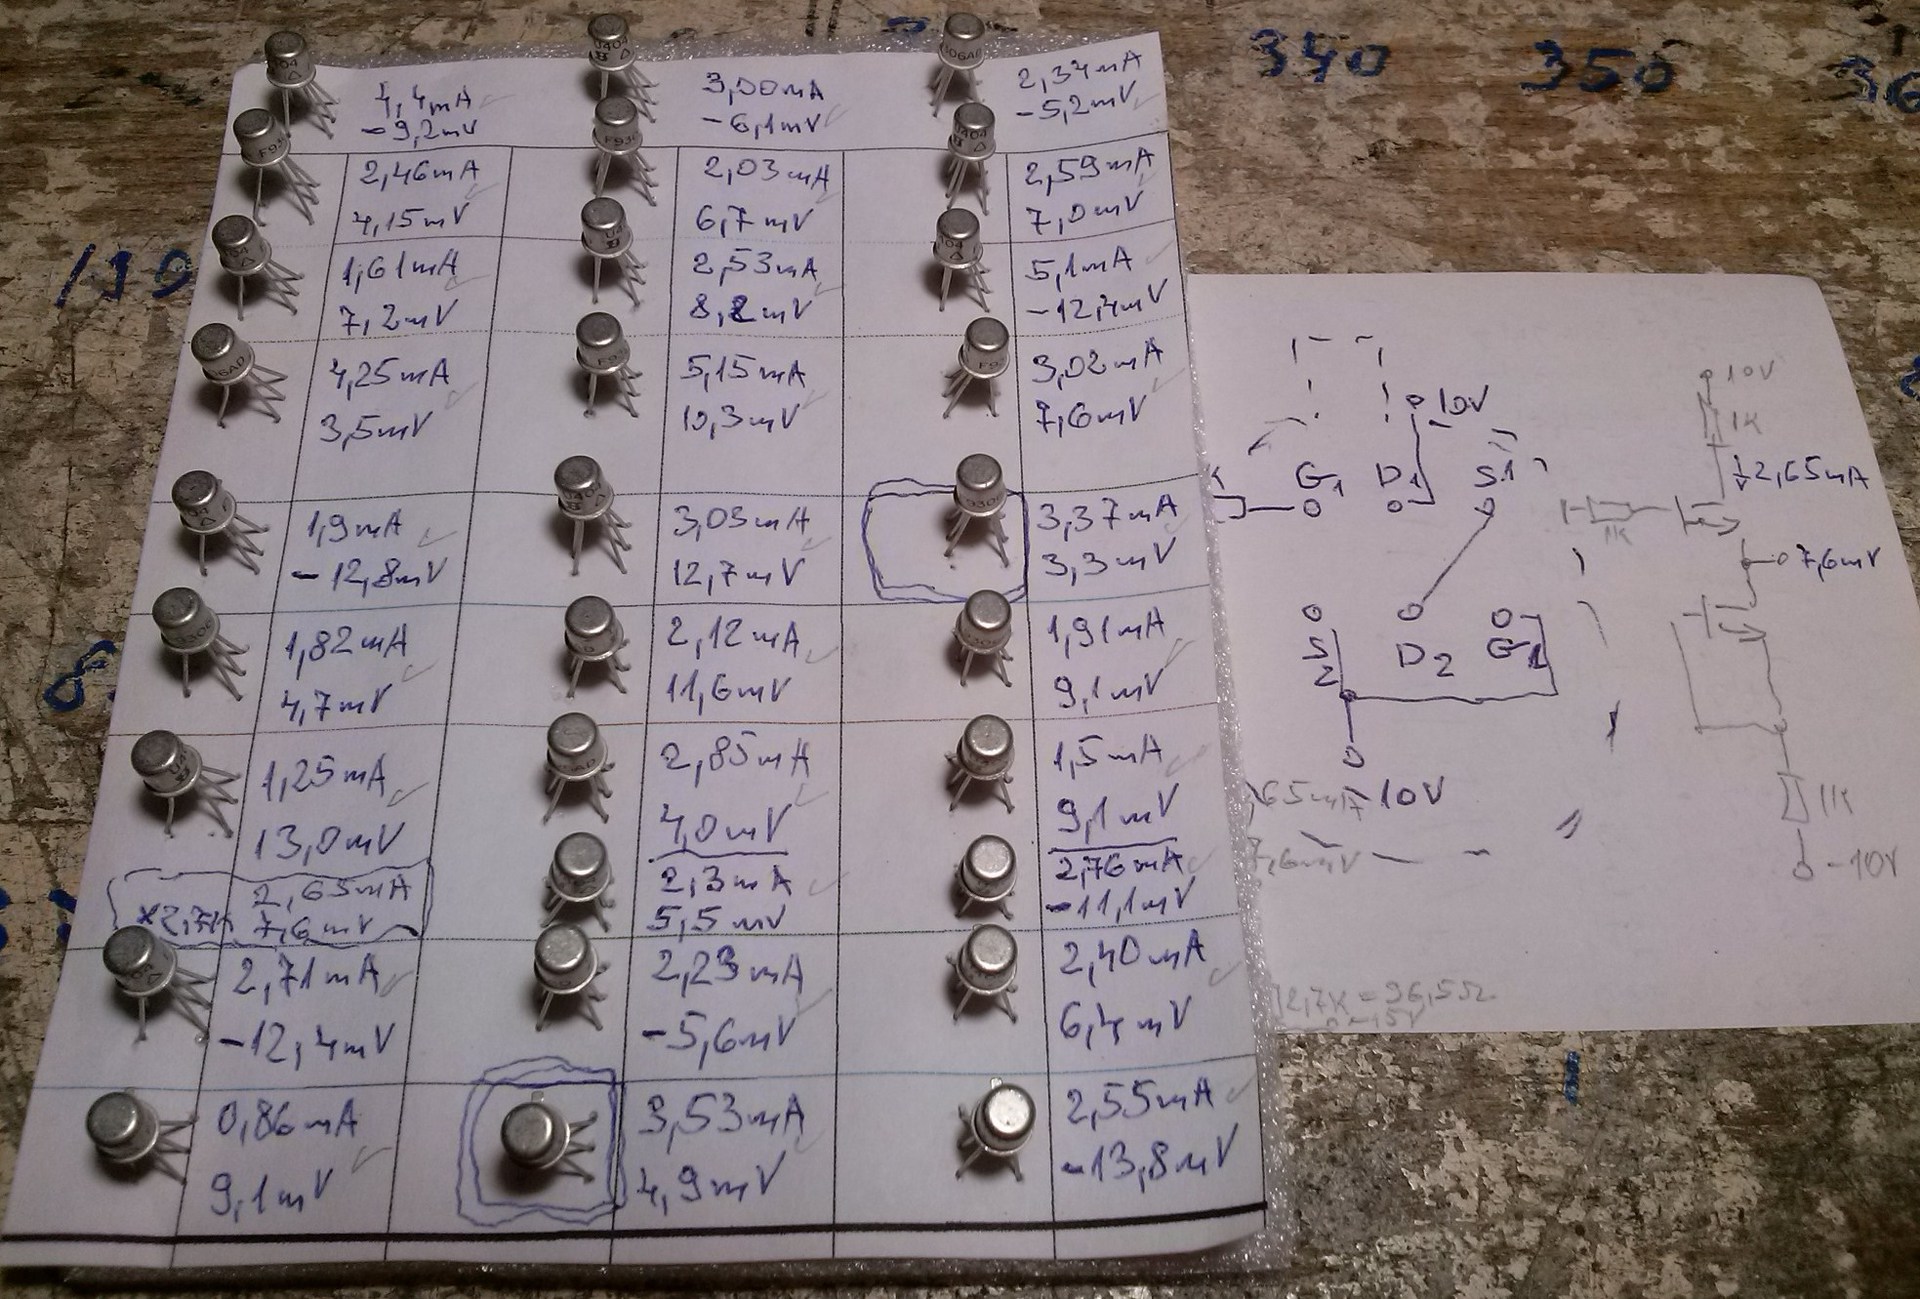 340 350 36
190
4,4mA
-9,2mV
2,46mA
4,15mV
1,61mA
7,2mV
4,25mA
3,5mV
1,9mA
-12,8mV
1,82mA
4,7mV
1,25mA
13,0mV
2,65mA
7,6mV
2,71mA
-12,4mV
0,86mA
9,1mV
3,00mA
-6,1mV
2,03mA
6,7mV
2,53mA
8,2mV
5,15mA
10,3mV
3,03mA
12,7mV
2,12mA
11,6mV
2,85mA
4,0mV
2,3mA
5,5mV
2,23mA
-5,6mV
3,53mA
4,9mV
2,34mA
-5,2mV
2,59mA
7,0mV
5,1mA
-12,4mV
3,02mA
7,6mV
3,37mA
3,3mV
1,91mA
9,1mV
1,5mA
9,1mV
2,76mA
-11,1mV
2,40mA
6,4mV
2,55mA
-13,8mV
10V
G1 D1 S1
S2 D2 G2
-10V
10V
1K
2,65mA
1K
7,6mV
1K
-10V
65mA
7,6mV
2,7K = 96,5Ω